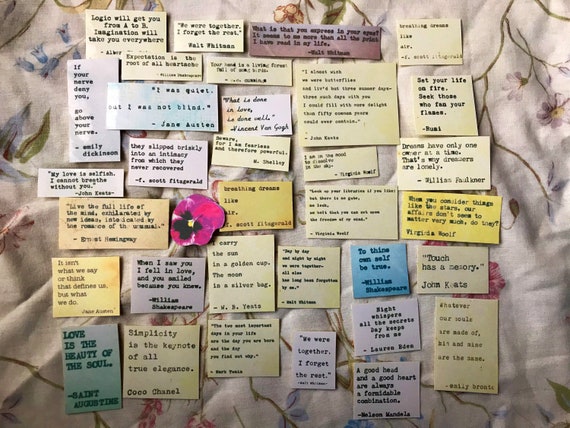 Logic will get you
from A to B.
Imagination will
take you everywhere
"We were together.
I forget the rest."
Walt Whitman
What is that you express in your eyes?
It seems to me more than all the print
I have read in my life.
-Walt Whitman
breathing dreams
like
air.
-f. scott fitzgerald
Expectation is the
root of all heartache
-William Shakespeare
Your hand is a living forest
full of
If
your
nerve
deny
you,
go
above
your
nerve.
- emily
dickinson
"I was quiet,
but I was not blind."
- Jane Austen
"What is done
in love,
is done well."
-Vincent Van Gogh
"I almost wish
we were butterflies
and liv'd but three summer days-
three such days with you
I could fill with more delight
than fifty common years
could ever contain."
- John Keats
Set your life
on fire.
Seek those
who fan your
flames.
-Rumi
they slipped briskly
into an intimacy
from which they
never recovered
-f. scott fitzgerald
Beware,
for I am fearless
and therefore powerful.
M. Shelley
I am in the mood
to dissolve
in the sky.
- Virginia Woolf
Dreams have only one
owner at a time.
That's why dreamers
are lonely.
- William Faulkner
"My love is selfish.
I cannot breathe
without you."
-John Keats-
breathing dreams
like
air.
f. scott fitzgerald
"Lock up your libraries if you like;
but there is no gate,
no lock,
no bolt that you can set upon
the freedom of my mind."
- Virginia Woolf
When you consider things
like the stars, our
affairs don't seem to
matter very much, do they?
Virginia Woolf
"Live the full life of
the mind, exhilarated by
new ideas, intoxicated by
the romance of the unusual."
- Ernest Hemingway
It isn't
what we say
or think
that defines us,
but what
we do.
Jane Austen
When I saw you
I fell in love,
and you smiled
because you knew.
-William
Shakespeare
I carry
the sun
in a golden cup.
The moon
in a silver bag.
- W. B. Yeats
"Day by day
and night by night
we were together.
all else
has long been forgotten
by me."
- Walt Whitman
To thine
own self
be true.
-William
Shakespeare
"Touch
has a memory."
John Keats
LOVE
IS THE
BEAUTY OF
THE SOUL.
-SAINT
AUGUSTINE
Simplicity
is the keynote
of all
true elegance.
Coco Chanel
"The two most important
days in your life
are the day you are born
and the day
you find out why."
- Mark Twain
"We were
together.
I forget
the rest."
-Walt Whitman-
Night
whispers
all the secrets
Day keeps
from me
- Lauren Eden
A good head
and a good heart
are always
a formidable
combination.
-Nelson Mandela
Whatever
our souls
are made of,
his and mine
are the same.
-emily bronte